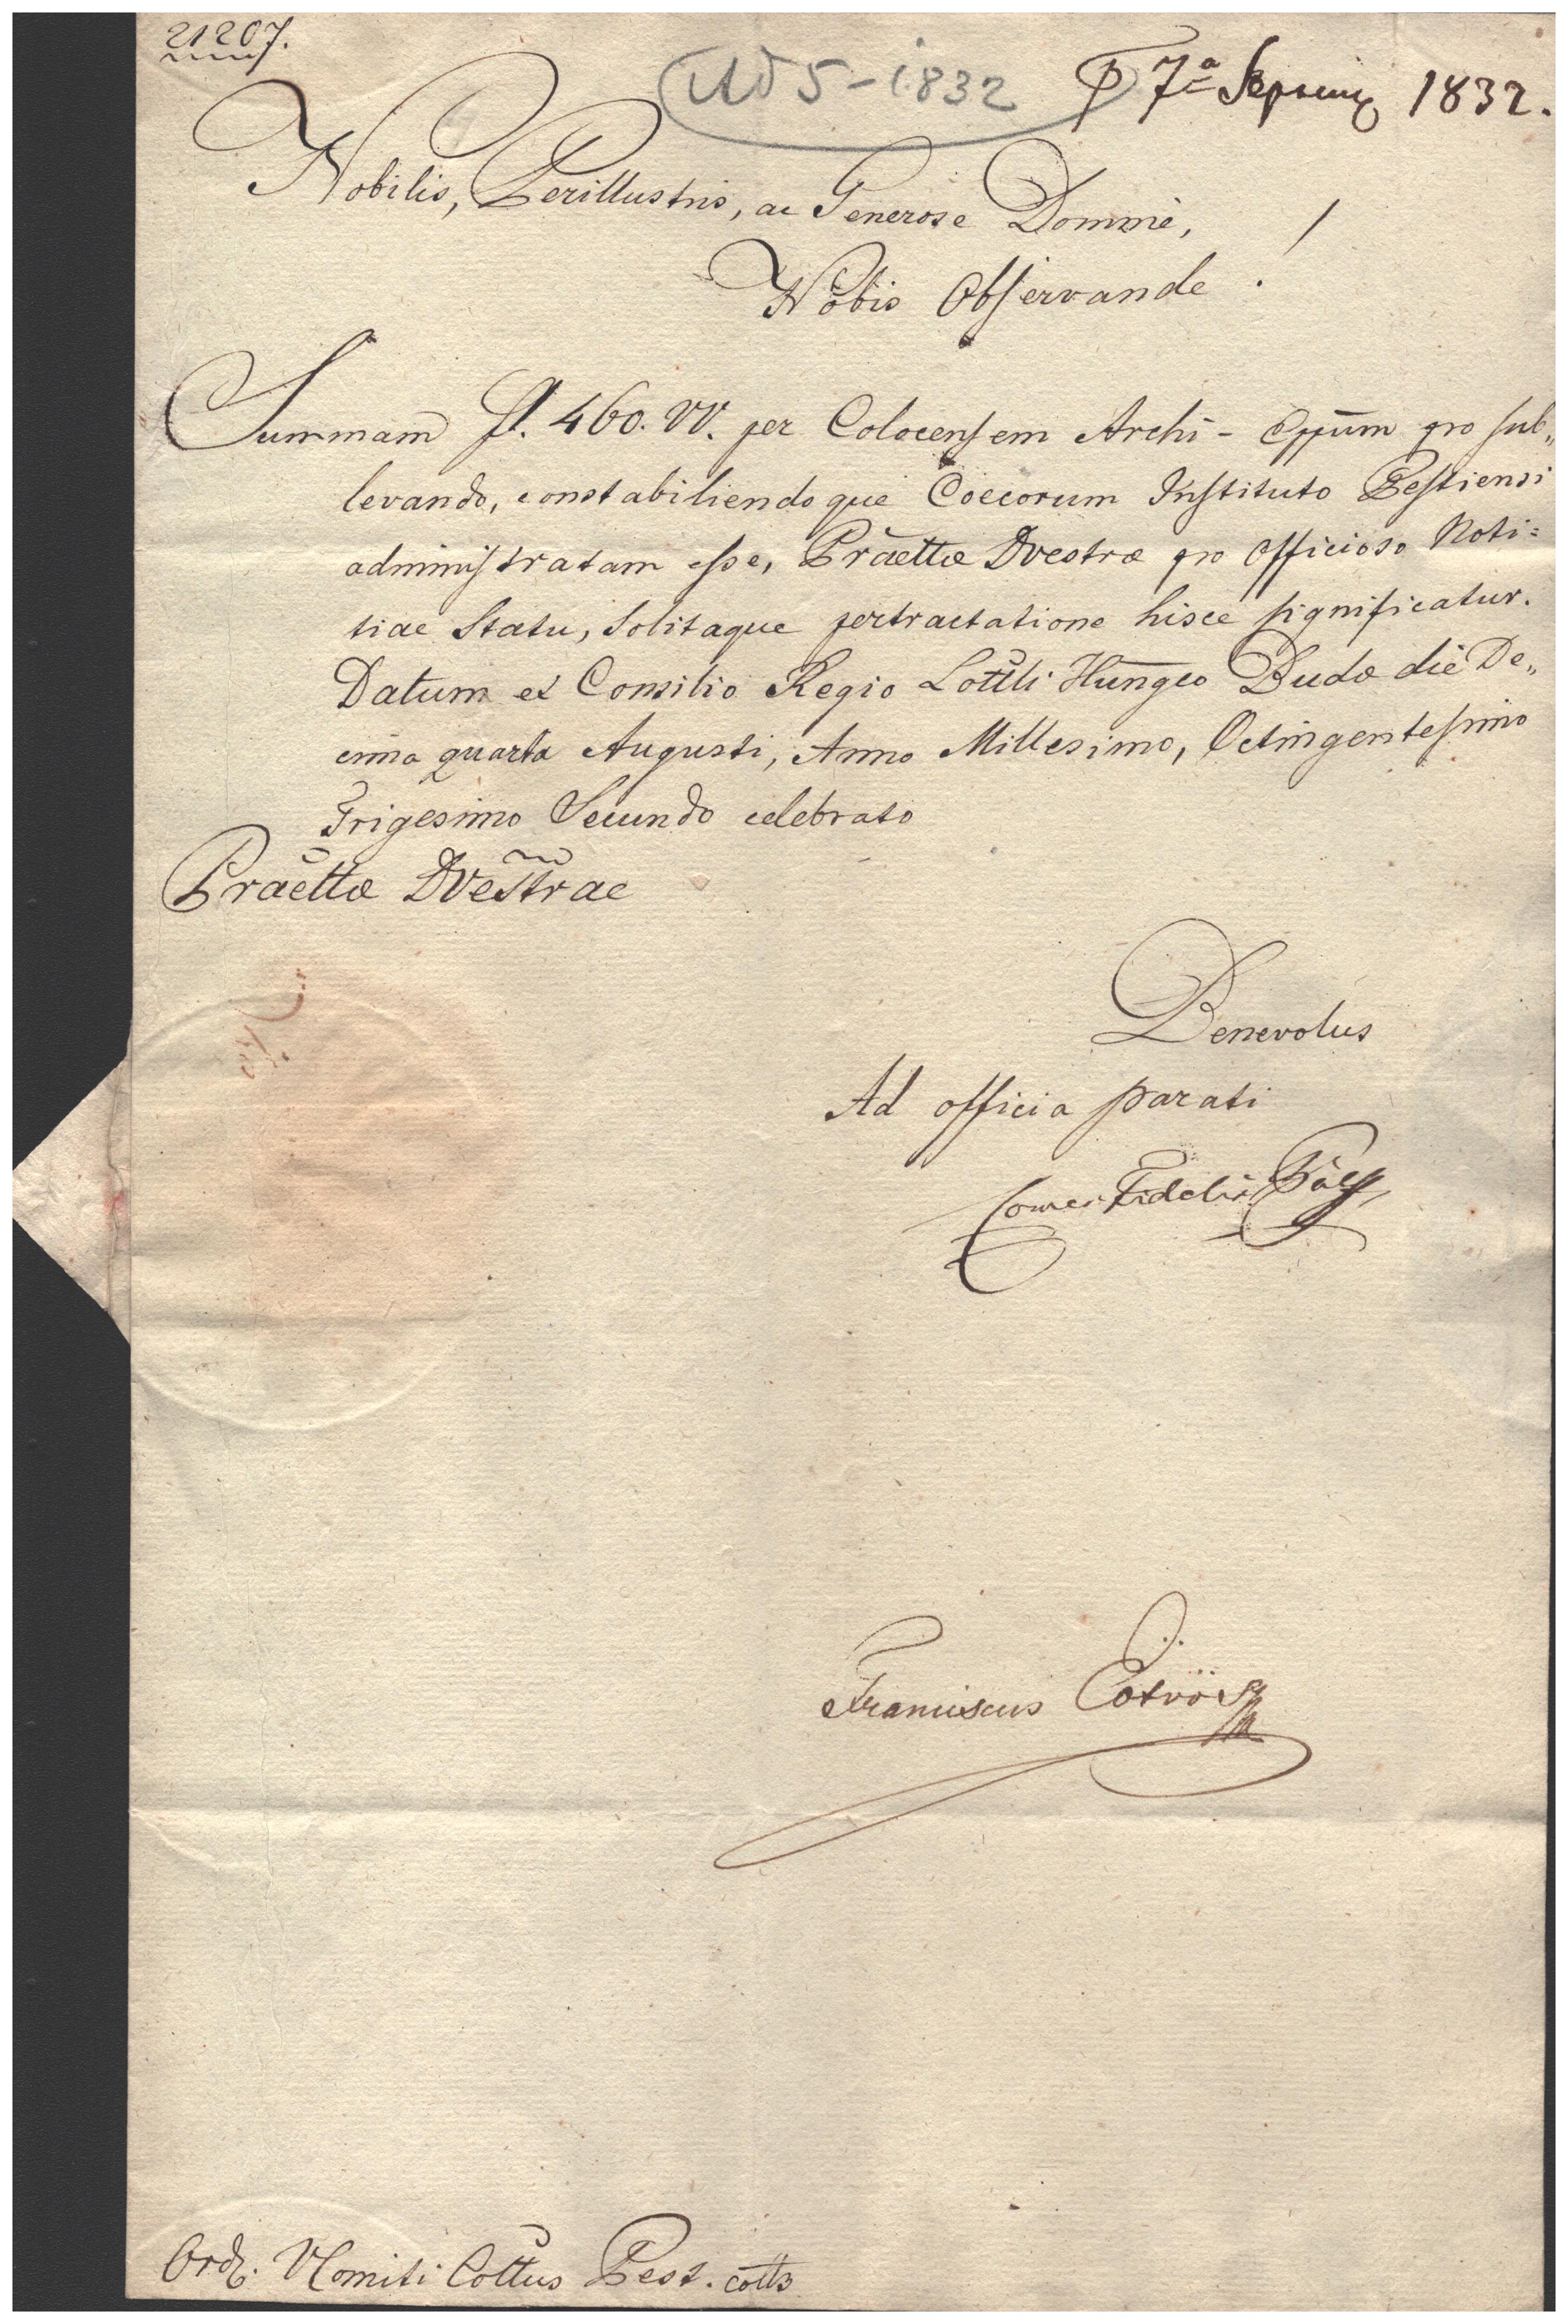 21207.
AD 5-1832
P 7a Septembr 1832.
Nobilis, Perillustris, ac Generose Domine,
Nobis Observande!
Summam fl. 460. VV. per Colocensem Archi-Eppūm pro sub„
levando, constabiliendoque Coecorum Instituto Pestiensi
administratam esse, Praettae Dvestrae pro Officiosa Noti=
tiae Statu, Solitaque pertractatione hisce significatur.
Datum ex Consilio Regio Lottli Hungco Budae die De„
cima quarta Augusti, Anno Millesimo, Octingentesimo
Trigesimo Secundo celebrato
Praettae Dvestrae
Benevolus
Ad officia parati
Comes Fidelis Pálffy
Franciscus Eötvös
Ord. VComiti Cottus Pest.